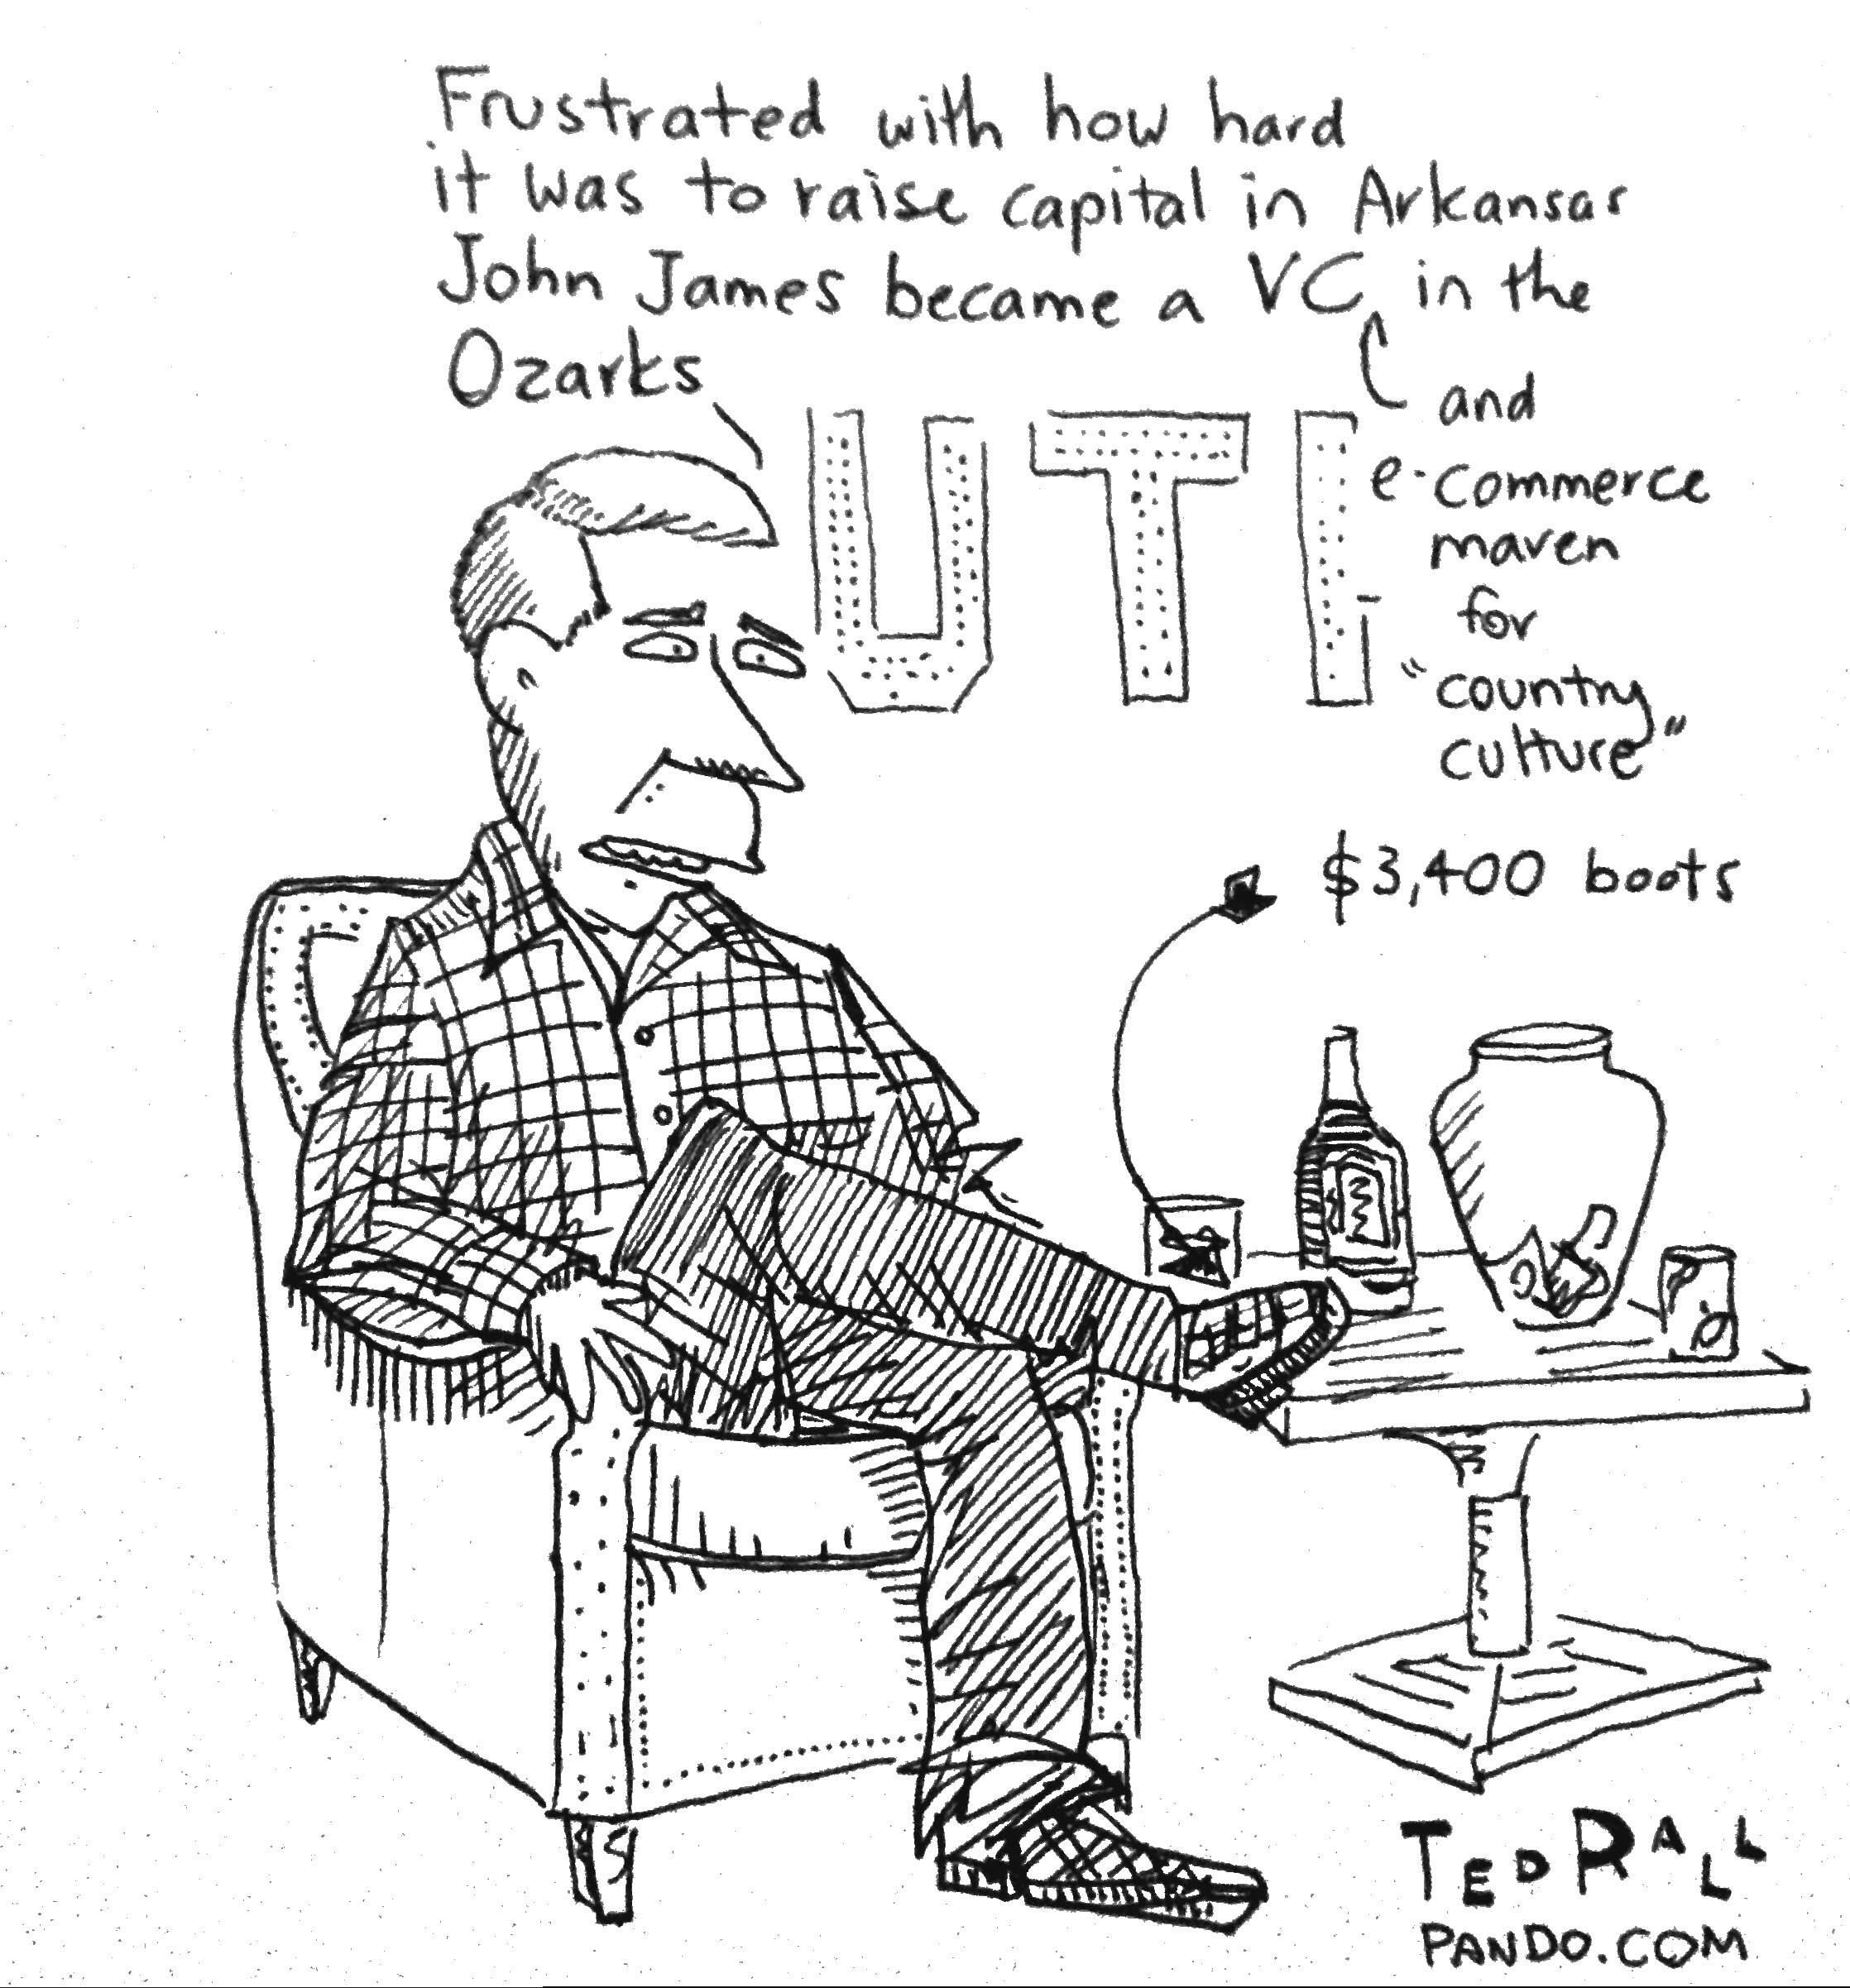 Frustrated with how hard
it was to raise capital in Arkansas
John James became a VC in the
Ozarks
and
e-commerce
maven
for
"country
culture"
UTI
$3,400 boots
TED RALL
PANDO.COM